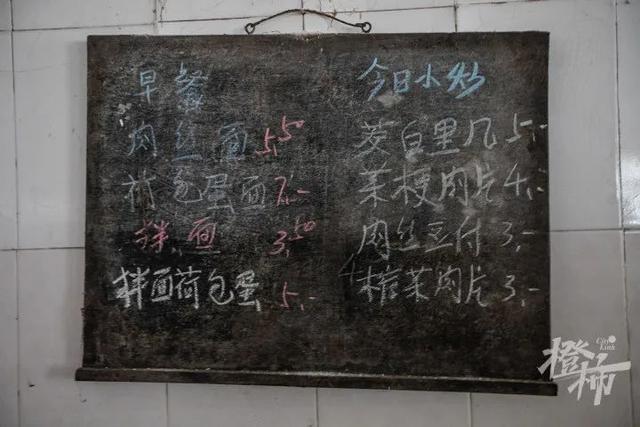 早餐
肉丝面 5.50
荷包蛋面 7.-
拌面 3.50
拌面荷包蛋 5.-
今日小炒
茭白里几 5.-
菜梗肉片 4.-
肉丝豆付 3.-
榨菜肉片 3.-
橙柿
City Link